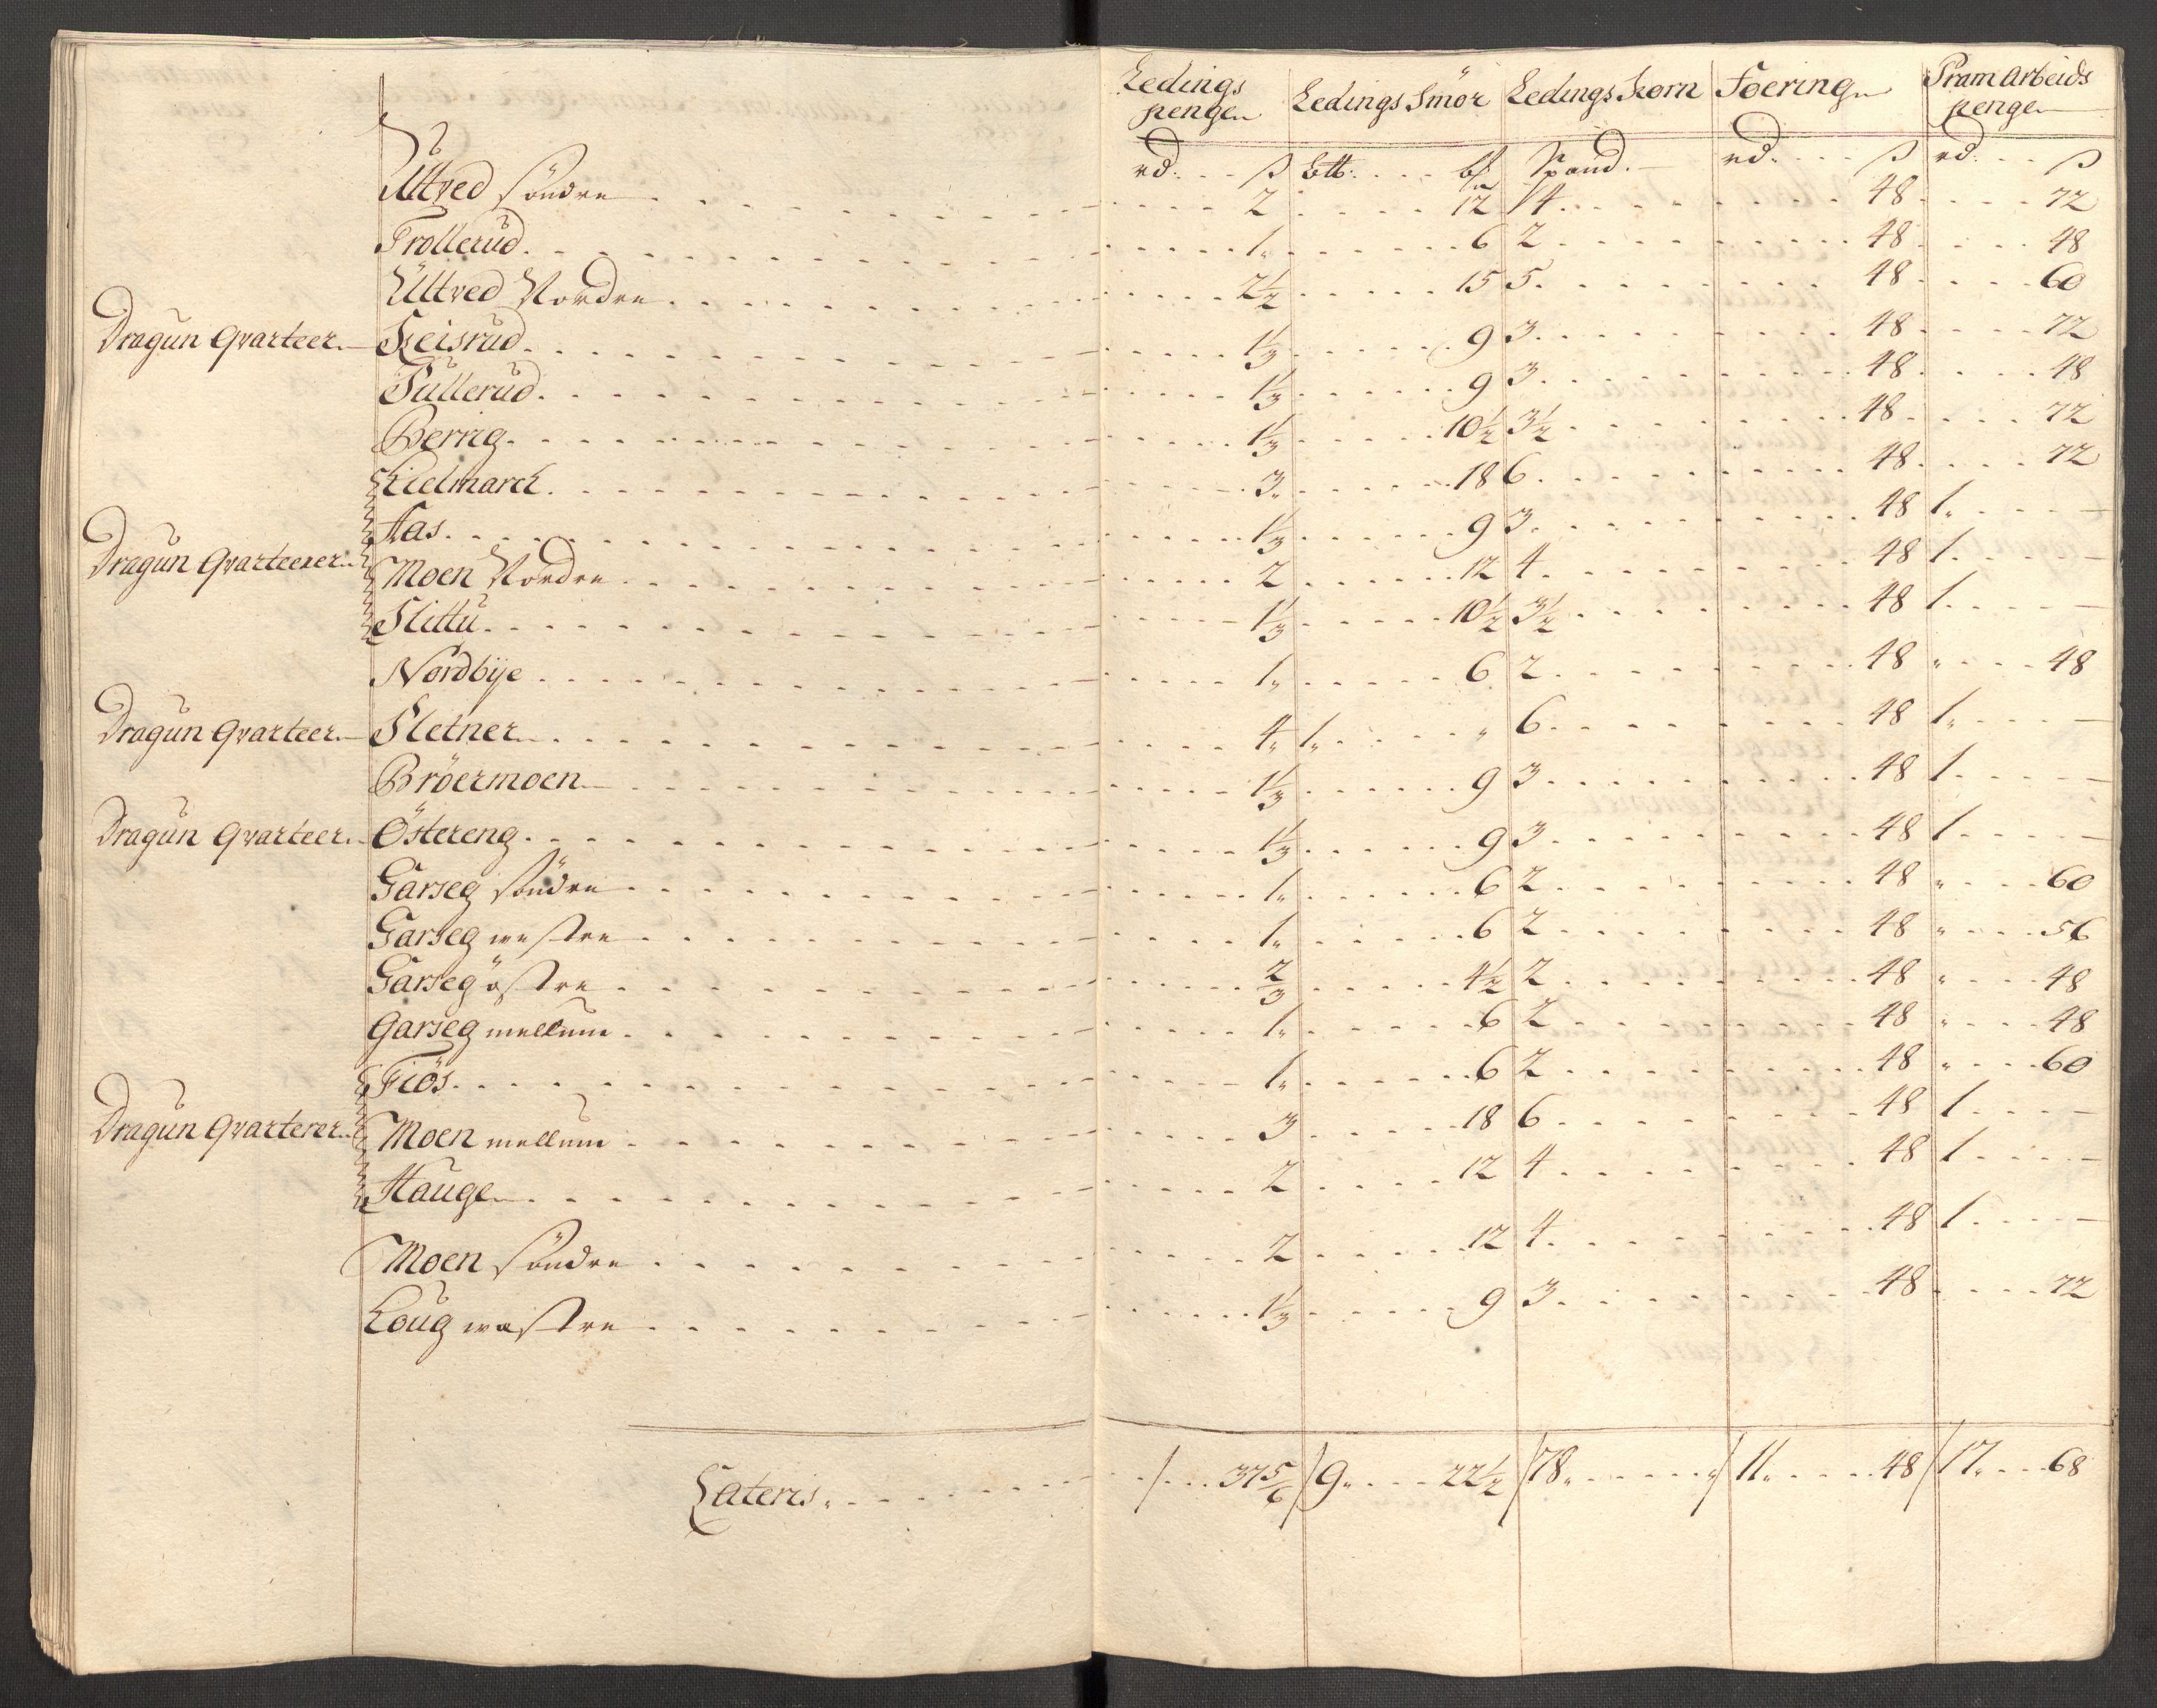 Ledings pengen | Ledings Smör | Ledings Korn | Foeringen | Pram Arbeids pengen
rd: ß | btt: bß | Spand. | rd. ß | rd: ß
Ultred söndre 2 12 4 48 72
Trollerud 1 6 2 48 48
Ultred Nordre 2½ 15 5 48 60
Dragun Qvarteer Keisrud 1⅓ 9 3 48 72
Tullerud 1⅓ 9 3 48 48
Berrig 1⅓ 10½ 3½ 48 72
Kielmarck 3 18 6 48 72
Aas 1⅓ 9 3 48 1
Dragun Qvarteerer Moen Nordre 2 12 4 48 1
Slittu 1⅓ 10½ 3½ 48 1
Nordbÿe 1 6 2 48 48
Dragun Qvarteer Sletner 4 1 6 48 1
Bröermoen 1⅓ 9 3 48 1
Dragun Qvarteer Östereng 1⅓ 9 3 48 1
Garseg söndre 1 6 2 48 60
Garseg westre 1 6 2 48 56
Garseg östre ⅔ 4½ 2 48 48
Garseg mellum 1 6 2 48 48
Fiös 1 6 2 48 60
Dragun Qvarterer Moen mellum 3 18 6 48 1
Hauge 2 12 4 48 1
Moen söndre 2 12 4 48 1
Loug wæstre 1⅓ 9 3 48 72
Lateris 37⅚ 9 22½ 78 11 48 17 68